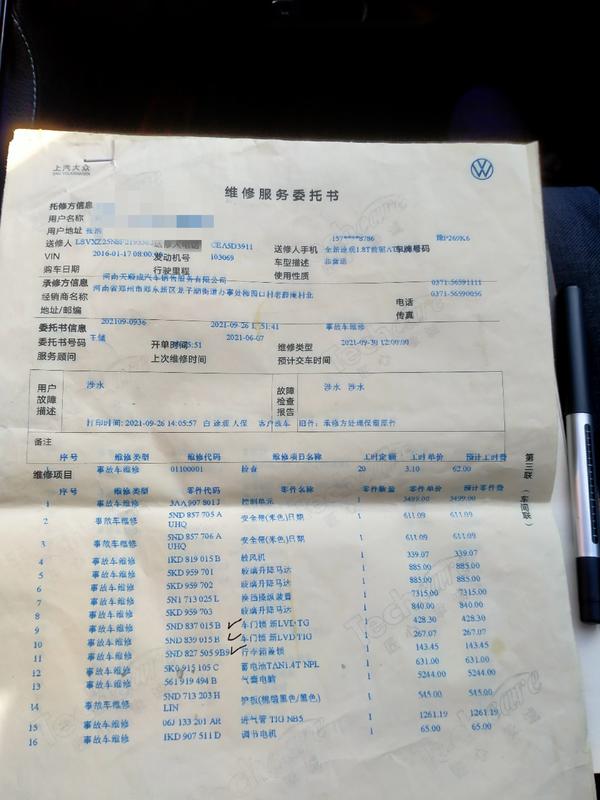 上汽大众
SAIC VOLKSWAGEN
维修服务委托书
托修方信息
用户名称
用户地址
送修人
送修人手机 157****8786
车牌号码 豫P269K6
VIN
发动机号 CEA5D3911
车型描述
购车日期 2016-01-17 08:00
行驶里程 103069
使用性质 非营运
承修方信息
经销商名称
地址/邮编
电话 0371-56591111
传真 0371-56590056
委托书信息
委托书号码 202109-0936
开单时间 2021-09-26
维修类型 事故车维修
服务顾问
上次维修时间 2021-06-07
预计交车时间 2021-09-30 12:00:00
用户故障描述 涉水
故障检查报告 涉水 涉水
打印时间: 2021-09-26 14:05:57
旧件: 承修方处理保留原件
备注
序号 维修类型 维修代码 维修项目名称 工时定额 工时单价 预计工时费
维修项目
1 事故车维修 01100001 检查 20 3.10 62.00
序号 维修类型 零件代码 零件名称 零件数量 零件单价 预计零件费
1 事故车维修 3AA 907 801 J 控制单元 1 3499.00 3499.00
2 事故车维修 5ND 857 705 A UHQ 安全带(米色)日期 1 611.09 611.09
3 事故车维修 5ND 857 706 A UHQ 安全带(米色)日期 1 611.09 611.09
4 事故车维修 1KD 819 015 B 鼓风机 1 339.07 339.07
5 事故车维修 5KD 959 701 玻璃升降马达 1 885.00 885.00
6 事故车维修 5KD 959 702 玻璃升降马达 1 885.00 885.00
7 事故车维修 5N1 713 025 L 换挡操纵装置 1 7315.00 7315.00
8 事故车维修 5KD 959 703 玻璃升降马达 1 840.00 840.00
9 事故车维修 5ND 837 015 B 车门锁 新LVD TG 1 428.30 428.30
10 事故车维修 5ND 839 015 B 车门锁 新LVD TIG 1 267.07 267.07
11 事故车维修 5ND 827 505 9B9 行李箱盖锁 1 143.45 143.45
12 事故车维修 5K0 915 105 C 蓄电池TAN1.4T NPL 1 631.00 631.00
13 事故车维修 561 919 494 B 气囊电脑 1 5244.00 5244.00
14 事故车维修 5ND 713 203 H LIN 1 545.00 545.00
15 事故车维修 06J 133 201 AR 进气管 TIG NB5 1 1261.19 1261.19
16 事故车维修 1KD 907 511 D 调节电机 1 65.00 65.00
第三联
(车间联)
Techcare